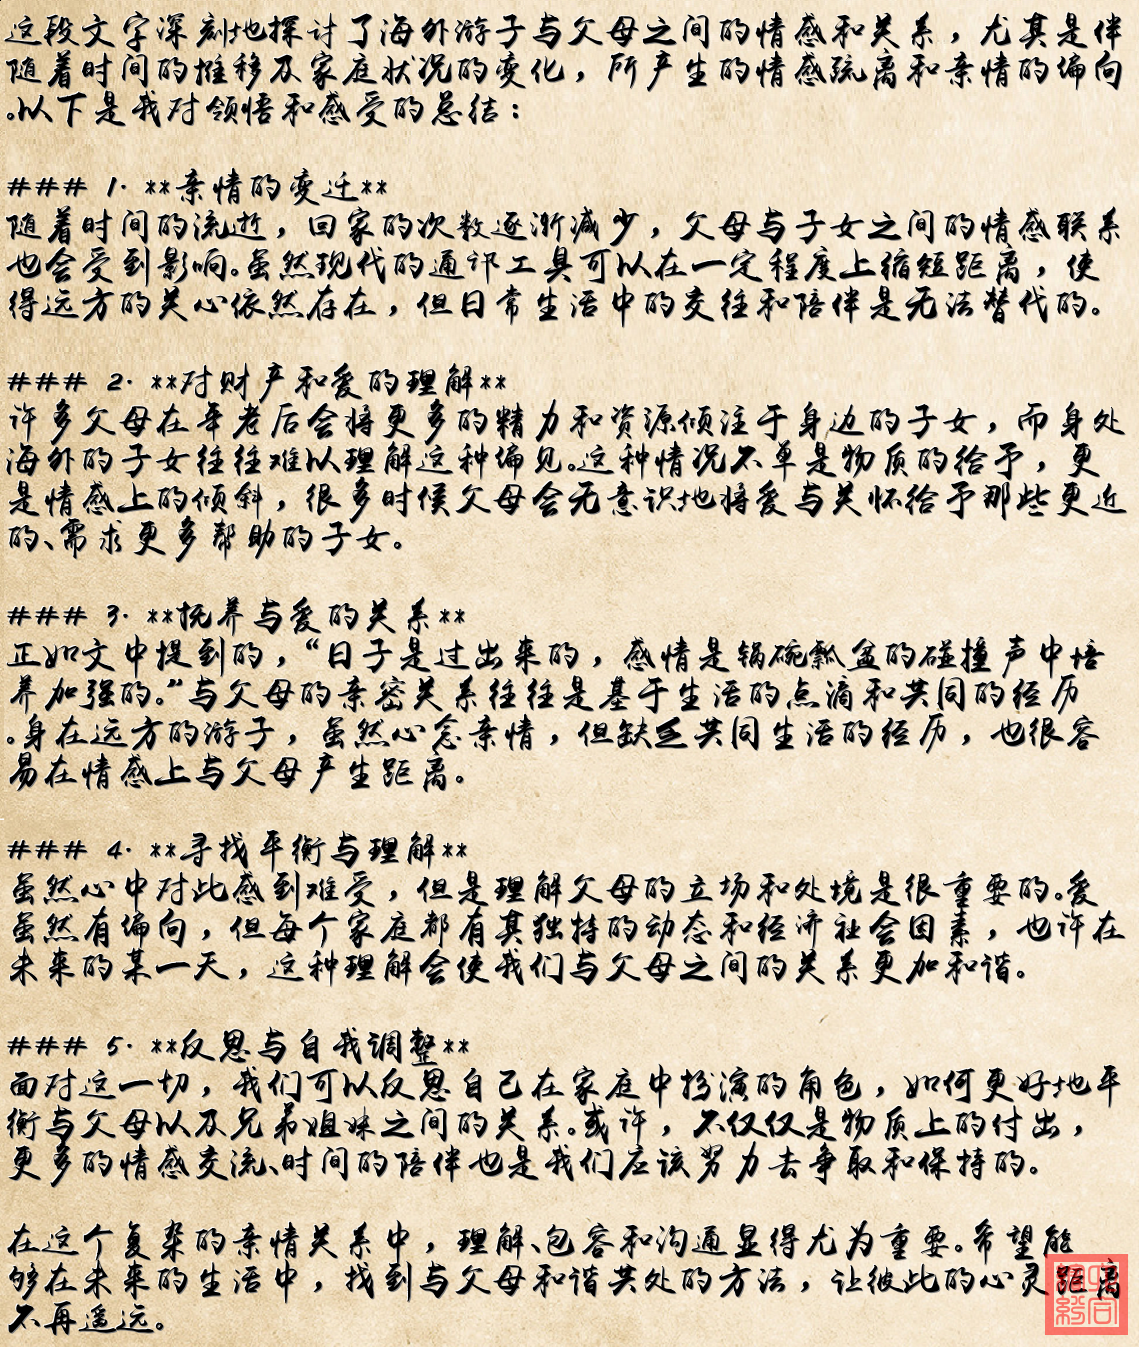 这段文字深刻地探讨了海外游子与父母之间的情感和关系，尤其是伴
随着时间的推移及家庭状况的变化，所产生的情感疏离和亲情的偏向
。以下是我对领悟和感受的总结：
### 1. **亲情的变迁**
随着时间的流逝，回家的次数逐渐减少，父母与子女之间的情感联系
也会受到影响。虽然现代的通讯工具可以在一定程度上缩短距离，使
得远方的关心依然存在，但日常生活中的交往和陪伴是无法替代的。
### 2. **对财产和爱的理解**
许多父母在年老后会将更多的精力和资源倾注于身边的子女，而身处
海外的子女往往难以理解这种偏见。这种情况不单是物质的给予，更
是情感上的倾斜，很多时候父母会无意识地将爱与关怀给予那些更近
的、需求更多帮助的子女。
### 3. **抚养与爱的关系**
正如文中提到的，“日子是过出来的，感情是锅碗瓢盆的碰撞声中培
养加强的。”与父母的亲密关系往往是基于生活的点滴和共同的经历
。身在远方的游子，虽然心念亲情，但缺乏共同生活的经历，也很容
易在情感上与父母产生距离。
### 4. **寻找平衡与理解**
虽然心中对此感到难受，但是理解父母的立场和处境是很重要的。爱
虽然有偏向，但每个家庭都有其独特的动态和经济社会因素，也许在
未来的某一天，这种理解会使我们与父母之间的关系更加和谐。
### 5. **反思与自我调整**
面对这一切，我们可以反思自己在家庭中扮演的角色，如何更好地平
衡与父母以及兄弟姐妹之间的关系。或许，不仅仅是物质上的付出，
更多的情感交流、时间的陪伴也是我们应该努力去争取和保持的。
在这个复杂的亲情关系中，理解、包容和沟通显得尤为重要。希望能
够在未来的生活中，找到与父母和谐共处的方法，让彼此的心灵距离
不再遥远。